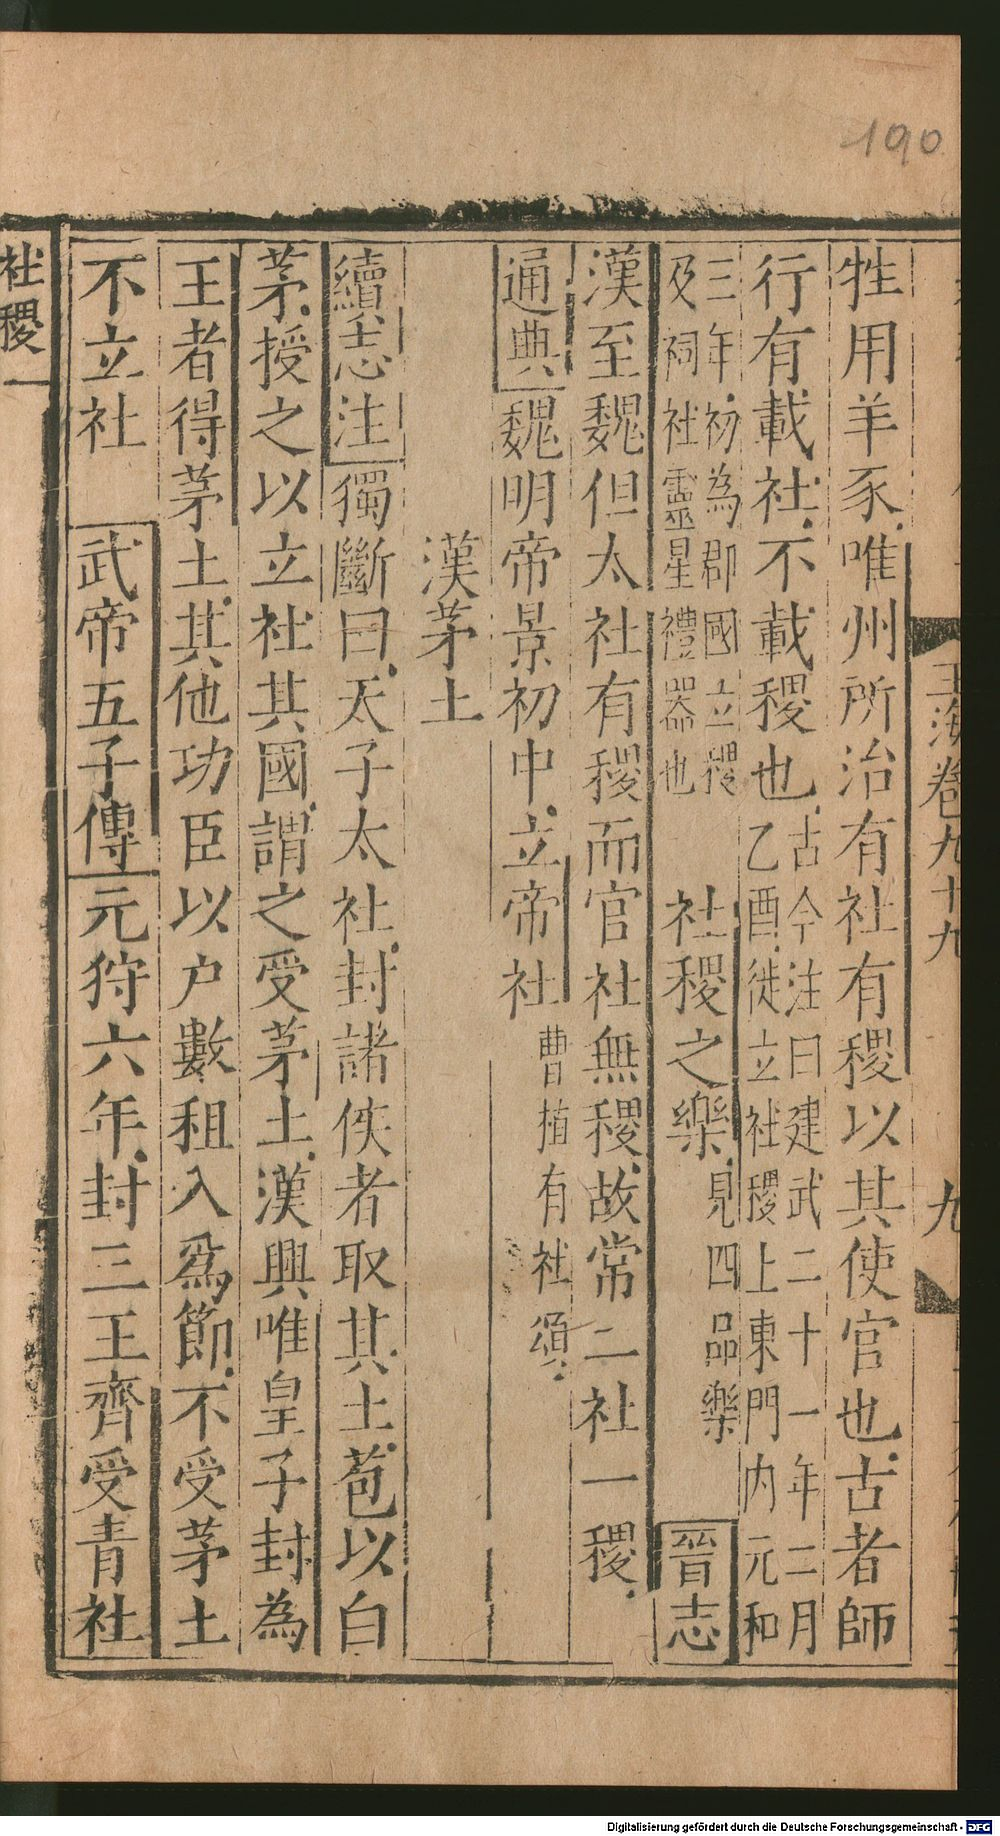 190
玉海卷九十九 九
牲用羊豕唯州所治有社有稷以其使官也古者師
行有載社不載稷也古今注曰建武二十一年二月
乙酉徙立社稷上東門内元和
三年初為郡國立稷
及祠社靈星禮器也 社稷之樂見四品樂 晉志
漢至魏但太社有稷而官社無稷故常二社一稷
通典魏明帝景初中立帝社曹植有社頌
漢茅土
續志注獨斷曰天子太社封諸侯者取其土苞以白
茅授之以立社其國謂之受茅土漢興唯皇子封為
王者得茅土其他功臣以户數租入爲節不受茅土
不立社 武帝五子傳元狩六年封三王齊受青社
社稷一
Digitalisierung gefördert durch die Deutsche Forschungsgemeinschaft - DFG